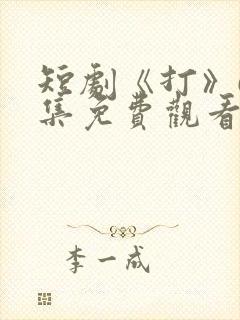 短劇《打》
集免費觀看
李一成